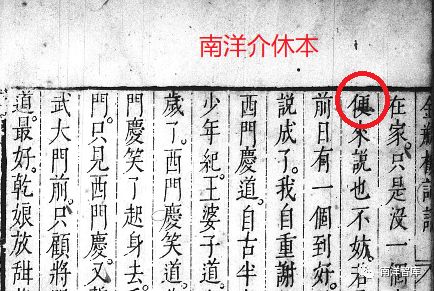 南洋介休本
金瓶梅詞話
在家。只是沒一個
便來說也不妨。若
前日有一個到好。
說成了。我自重謝
西門慶道。自古半
少年紀。王婆子道
歲了。西門慶笑道
門慶笑了起身去
門。只見西門慶又
武大門前。只顧將
道最好。乾娘放甜
南洋智库